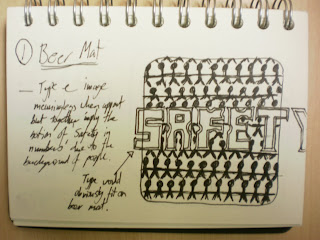 ① Beer Mat
— Type & image
meaningless when apart
but together imply the
notion of 'Safety in
numbers' due to the
background of people.
Type would
obviously fit on
beer mat.
SAFETY